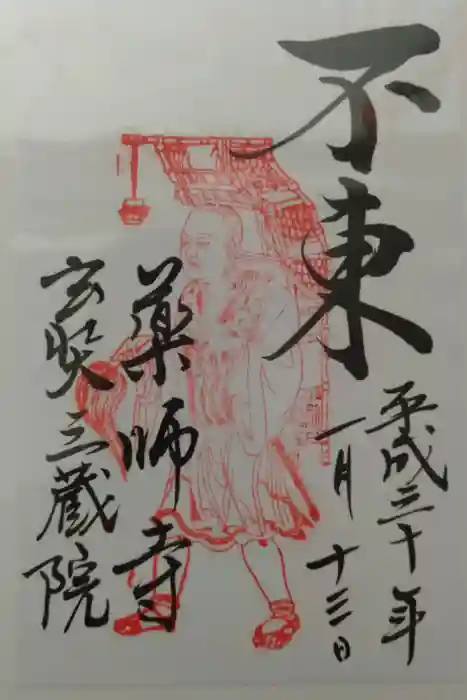 不東
平成三十年
一月十三日
薬師寺
玄奘三蔵院